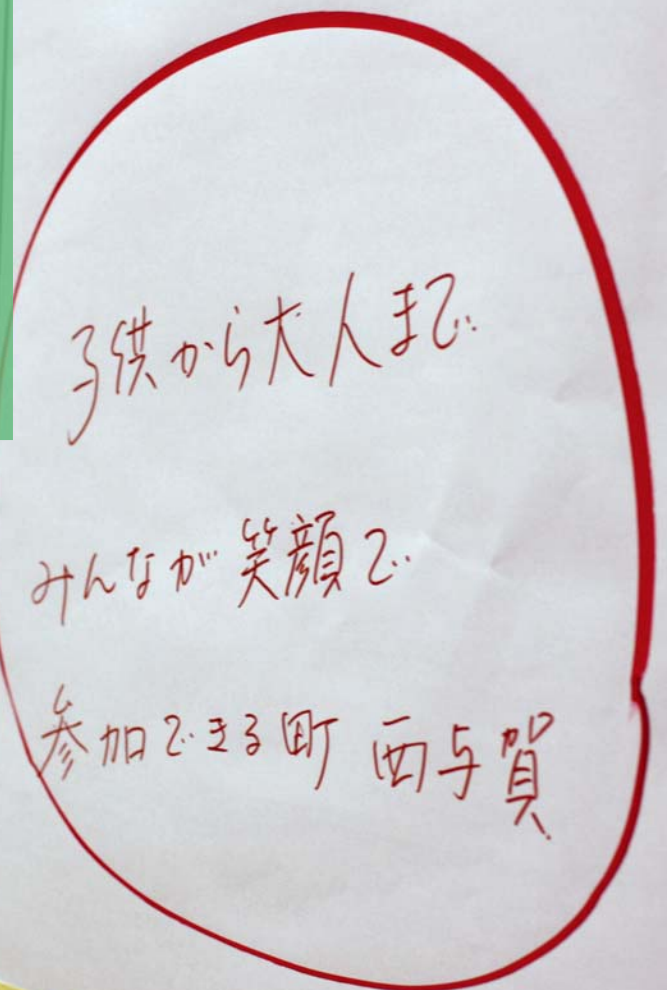 子供から大人まで
みんなが笑顔で
参加できる町 西与賀